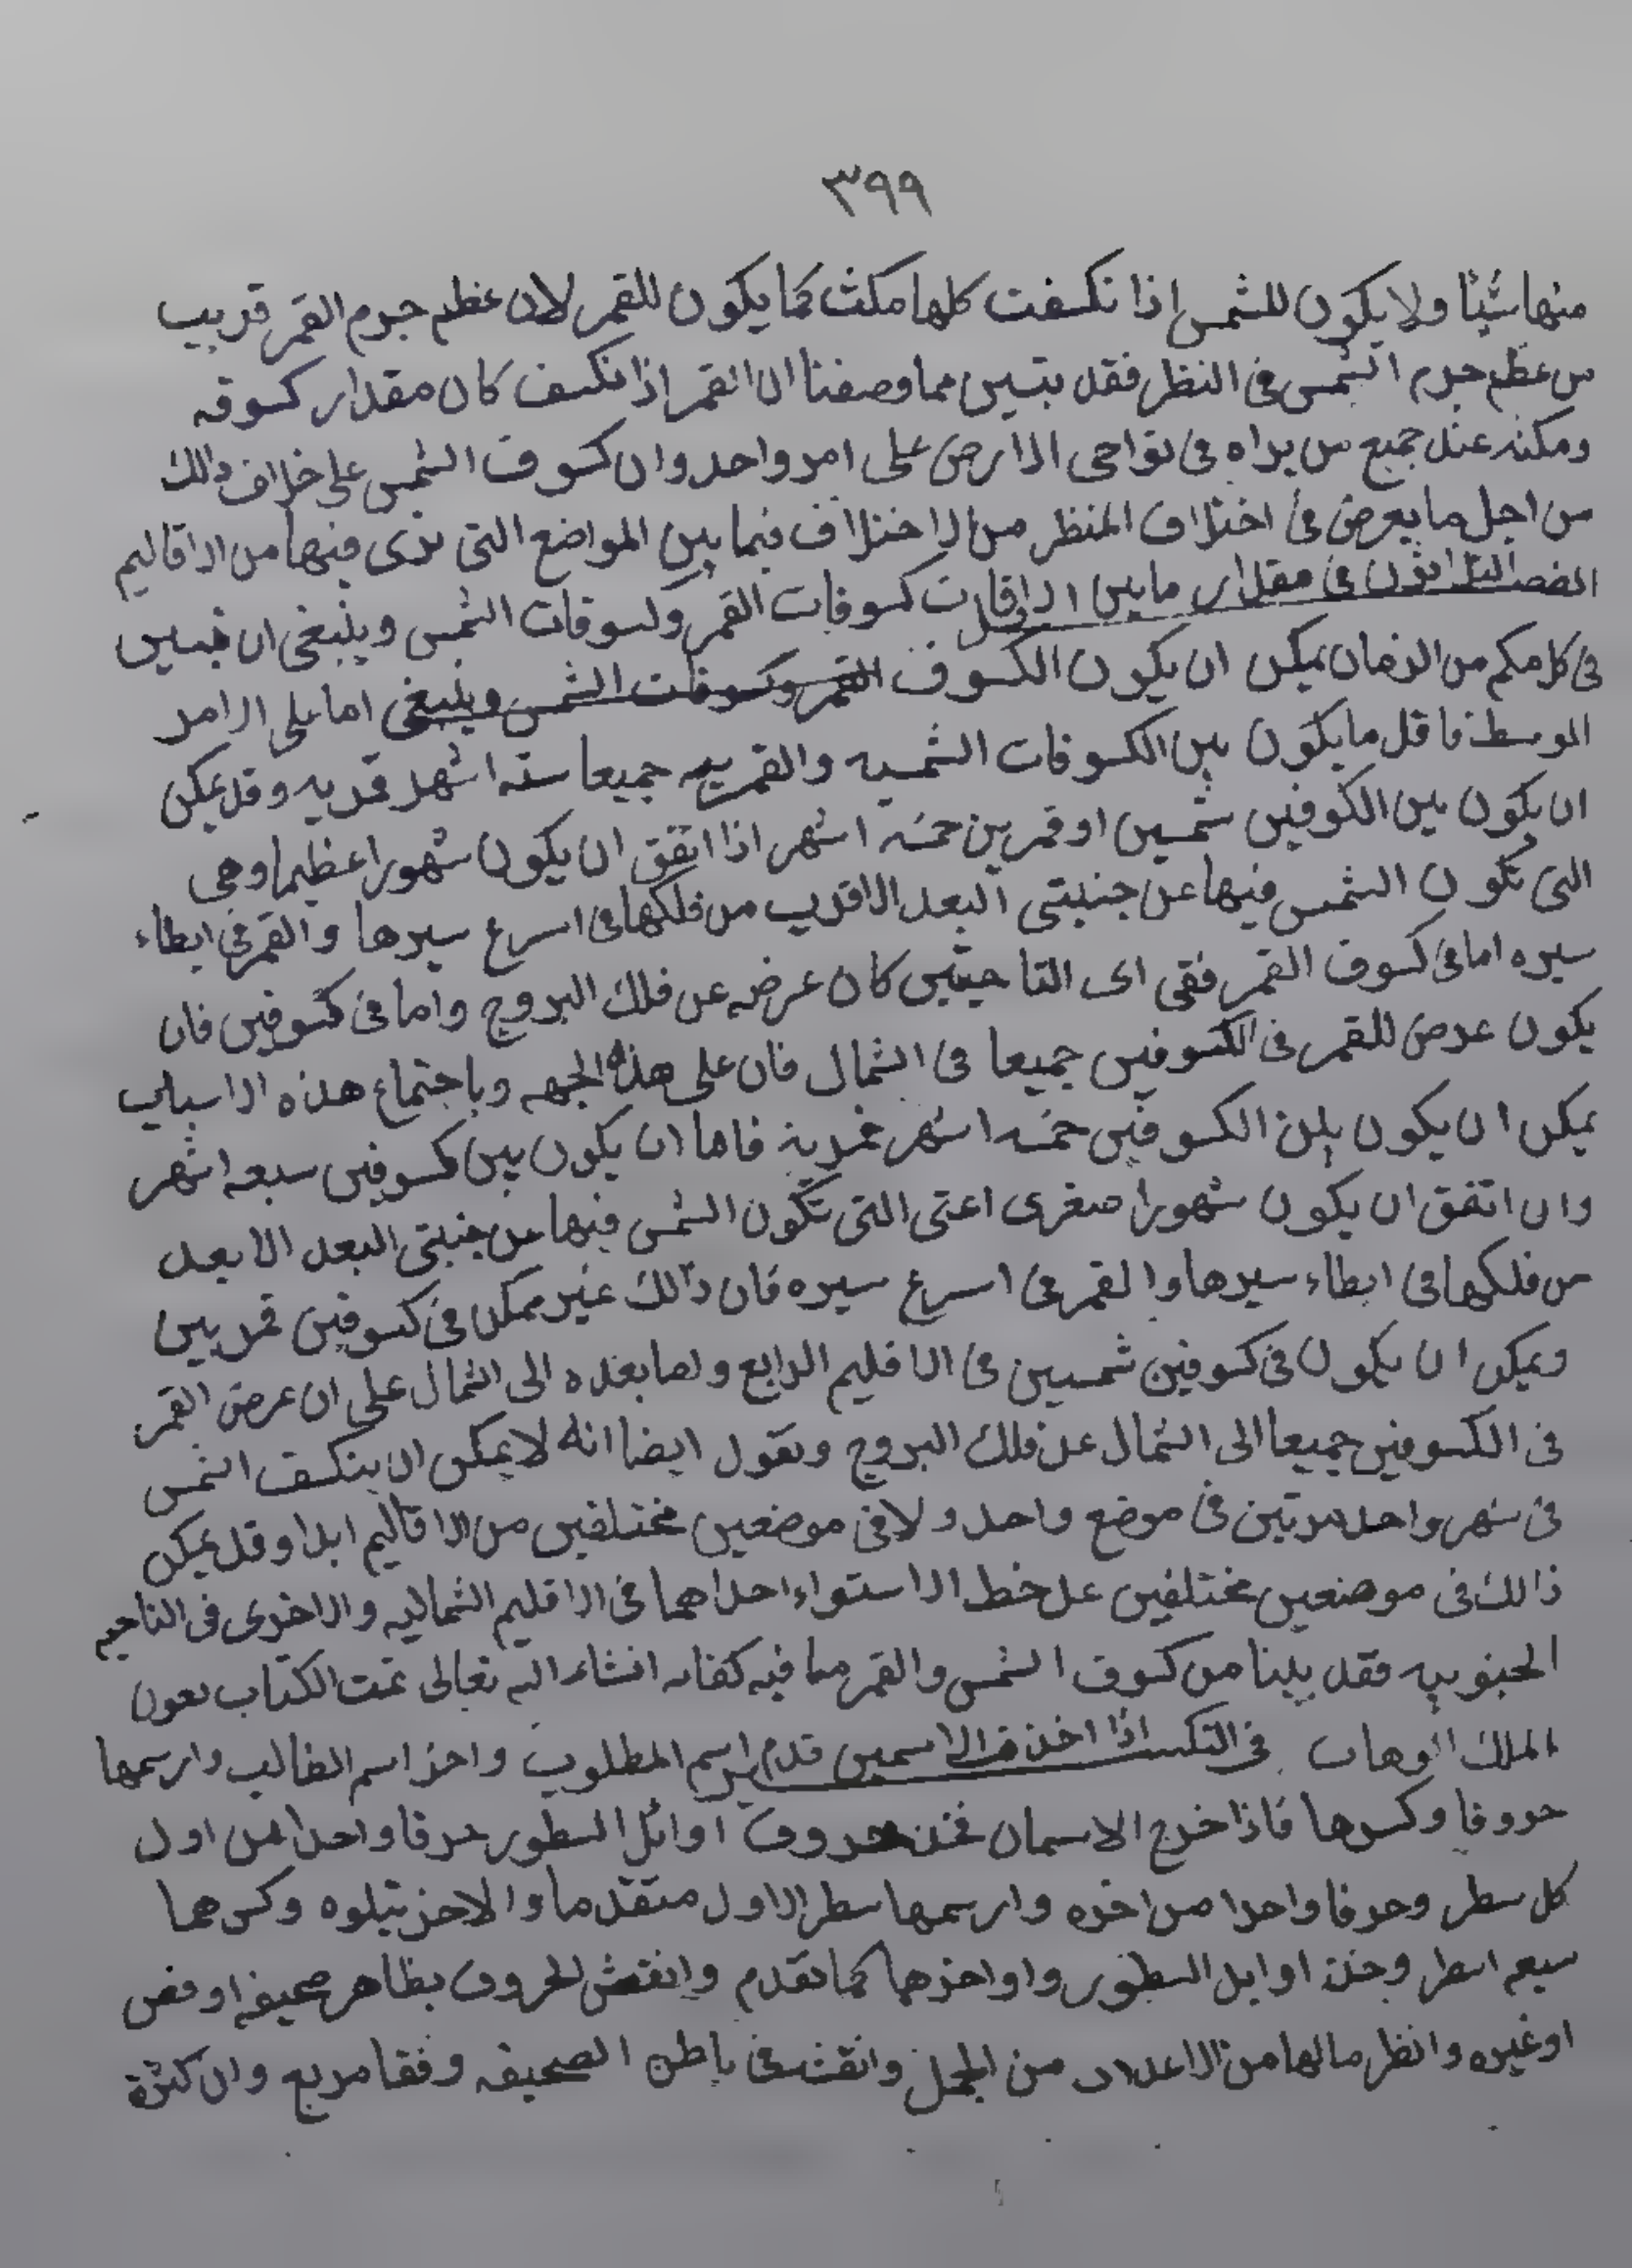 ٣٩٩
منها شيئا ولا يكون للشمس اذا نكسفت كلها مكث كما يكون للقمر لان عظم جرم القمر قريب
من عظم جرم الشمس فى النظر فقد بتبين مما وصفنا ان القمر اذا نكسف كان مقدار كسوفه
ومكثه عند جميع من يراه فى نواحى الارض على امر واحد وان كسوف الشمس على خلاف ذالك
من اجل ما يعرض فى اختلاف المنظر من الاختلاف فيما بين المواضع التى ترى فيها من الاقاليم
الفصل الثلاثون فى مقدار ما بين اوقات كسوفات القمر وكسوفات الشمس وينبغى ان نبين
فى كل مكم من الزمان يمكن ان يكون الكسوف القمر وكسوفات الشمس وينبغى اما على الامر
الموسط فاقل ما يكون بين الكسوفات الشمسيه والقمريه جميعا سته اشهر قمريه وقد يمكن
ان يكون بين الكوفين شمسين او قمرين خمسه اشهر اذا اتفق ان يكون شهورا عظيما وهى
التى تكون الشمس فيها عن جنبتى البعد الاقرب من فلكها فى اسرع سيرها والقمر فى ابطاء
سيره اما فى كسوف القمر ففى اى التاحيتين كان عرضه عن فلك البروج واما فى كسوفين فان
يكون عرض للقمر فى الكسوفين جميعا فى الشمال فان على هذه الجهه وباجتماع هذه الاسباب
يمكن ان يكون بين الكسوفين خمسه اشهر قمرية فاما ان يكون بين كسوفين سبعه اشهر
وان اتفق ان يكون شهورا صغرى اعنى التى تكون الشمس فيها عن جنبتى البعد الابعد
من فلكها فى ابطاء سيرها والقمر فى اسرع سيره فان ذالك غير ممكن فى كسوفين قمريين
ويمكن ان يكون فى كسوفين شمسيين فى الاقليم الرابع ولما بعده الى الشمال على ان عرض القمر
فى الكسوفين جميعا الى الشمال عن فلك البروج ونقول ايضا انه لا يمكن ان ينكسف الشمس
فى شهر واحد مرتين فى موضع واحد ولا فى موضعين مختلفين من الاقاليم ابدا وقد يمكن
ذالك فى موضعين مختلفين عل خط الاستواء احداهما فى الاقليم الشماليه والاخرى فى الناحيه
الجنوبيه فقد بينا من كسوف الشمس والقمر ما فيه كفايه انشاء الله تعالى تمت الكتاب بعون
الملك الوهاب فى التكسير اذا اخذت الاسمين قدم اسم المطلوب واخر اسم الطالب وارسمها
حروفا وكسرها فاذا خرج الاسمان فخذ حروف اوائل السطور حرفا واحدا من اول
كل سطر وحرفا واحدا من اخره وارسمها سطر الاول متقدما والاخر يتلوه وكسرهما
سبعه اسطر وخذ اوايل السطور واواخرها كما تقدم وانقش الحروف بظاهر صحيفه او فص
او غيره وانظر ما لها من الاعداد من الجمل وانقشه فى باطن الصحيفه وفقا مربع وان كثرة